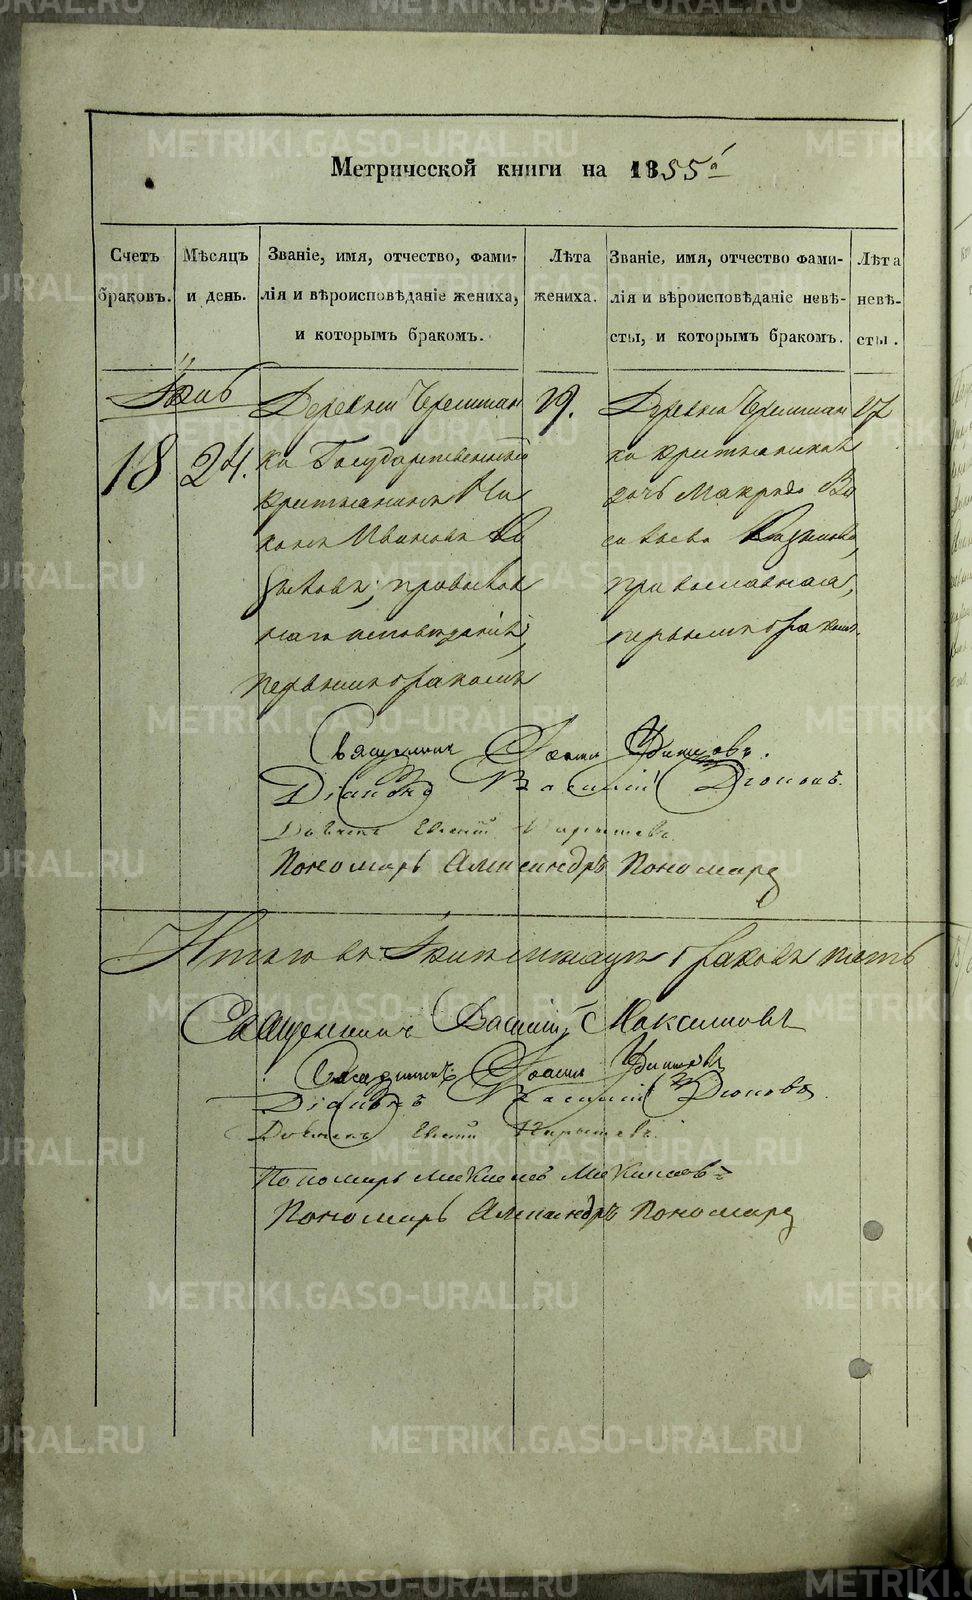 Метрической книги на 1855й
Счетъ браковъ.
Мѣсяцъ и день.
Званіе, имя, отчество, фами-
лія и вѣроисповѣданіе жениха,
и которымъ бракомъ.
Лѣта жениха.
Званіе, имя, отчество фами-
лія и вѣроисповѣданіе невѣ-
сты, и которымъ бракомъ.
Лѣта невѣ-
сты.
18
24.
Деревни Черемшан
ки Государственный
крестьянинъ Ни
конъ Ивановъ
православ
наго исповѣданія,
первымъ бракомъ
19.
Деревни Черемшан
ки крестьянина
дочь Макрида Ва
сильева
православная,
первымъ бракомъ.
17
Священникъ Іоаннъ
Діаконъ Василій Діоновъ.
Дьячекъ Евгеній
Пономарь Александръ Пономарев
Итого въ мѣсяцѣ браковъ пять
Священникъ Василій Максимовъ
Священникъ Іоаннъ
Діаконъ Василій Діоновъ.
Дьячекъ Евгеній
Пономарь
Пономарь Александръ Пономарев
METRIKI.GASO-URAL.RU